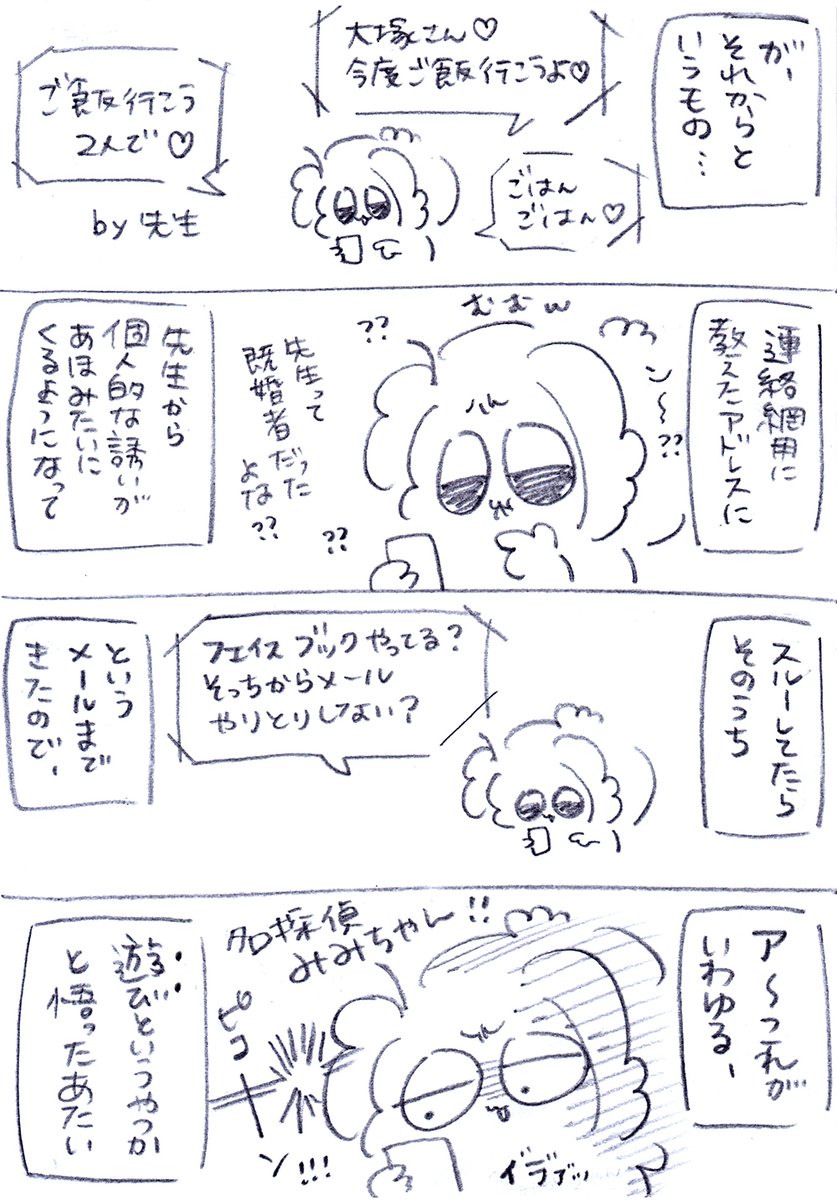 が、
それからと
いうもの…
大塚さん♡
今度ご飯行こうよ♡
ごはん
ごはん♡
ご飯行こう
2人で♡
by 先生
連絡網用に
教えたアドレスに
ン〜??
むむw
??
先生って
既婚者だった
よな??
??
先生から
個人的な誘いが
あほみたいに
くるようになって
スルーしてたら
そのうち
フェイスブックやってる?
そっちからメール
やりとりしてない?
という
メールまで
きたので、
ア〜ッこれが
いわゆるー
名探偵
みみちゃん!!
ピコーン!!!
イラアッ
遊びというやつか
と悟ったあたい